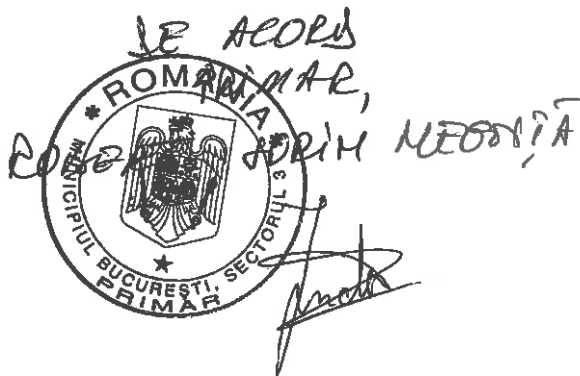 DE ACORD
PRIMAR,
ROBERT SORIN NEGOIȚĂ
* ROMÂNIA *
MUNICIPIUL BUCUREȘTI, SECTORUL 3
PRIMAR